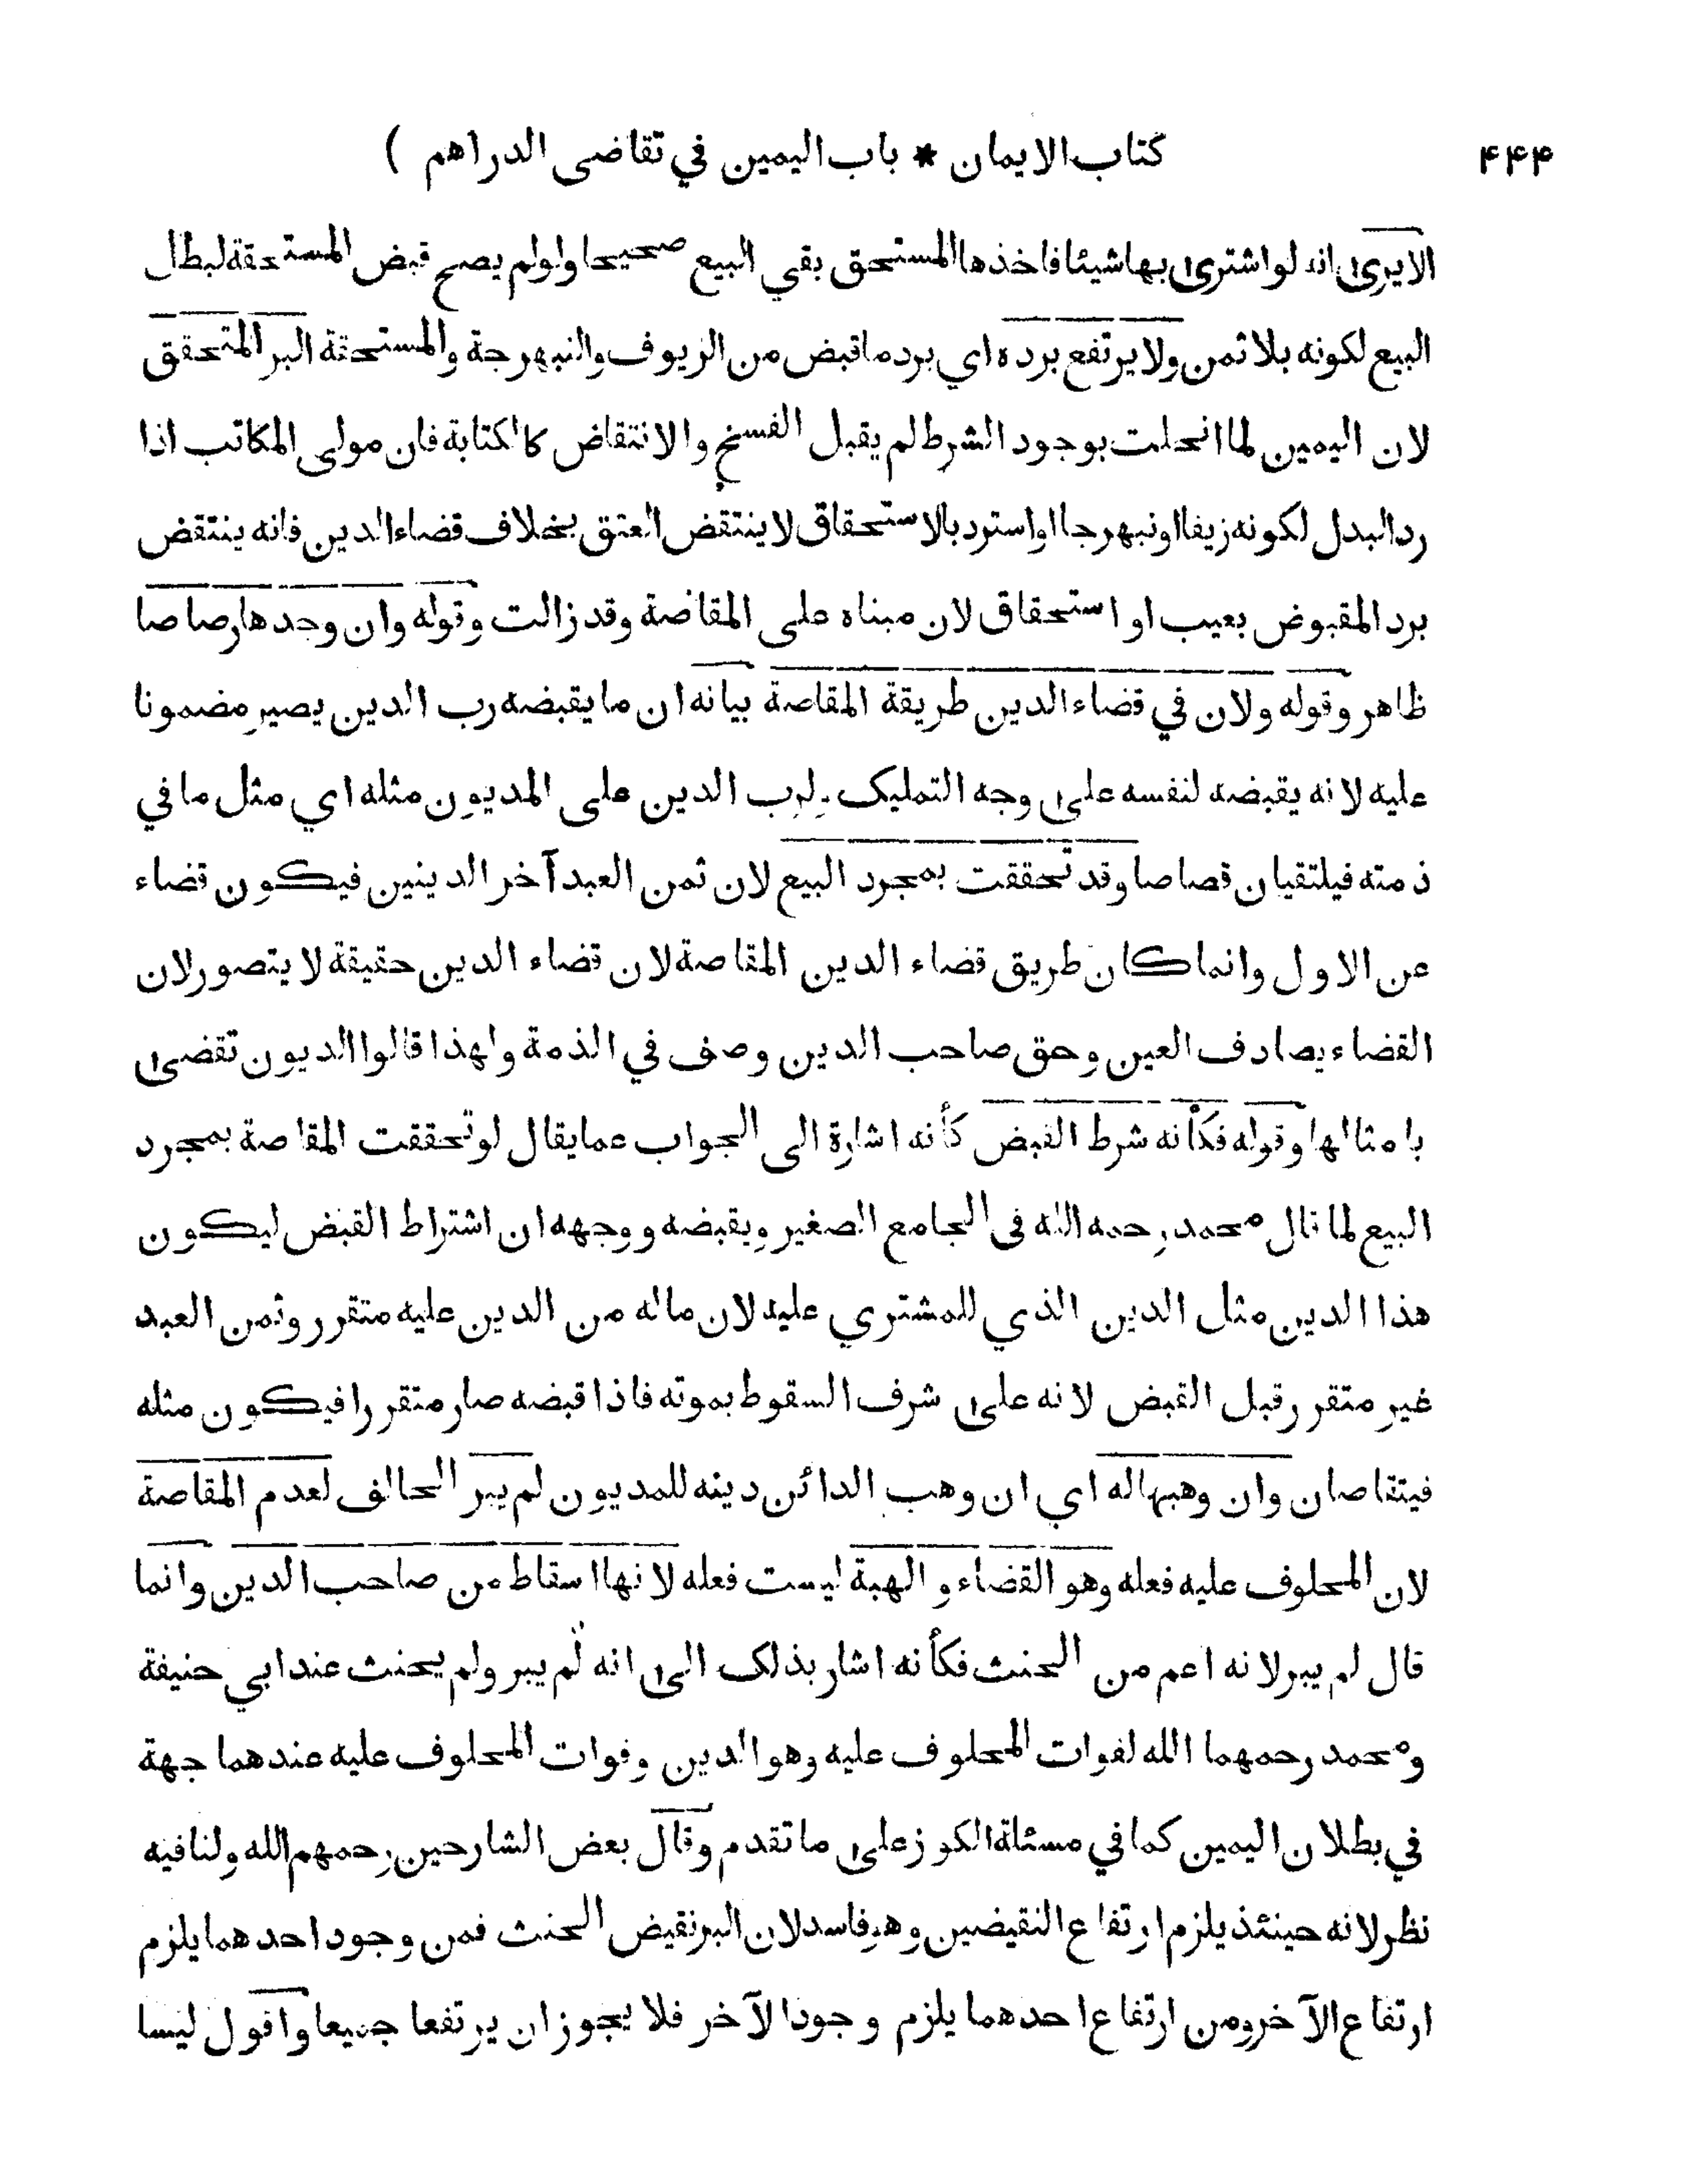 ۴۴۴ كتاب الايمان * باب اليمين في تقاضى الدراهم )
الا يرىٰ انه لو اشترىٰ بها شيئا فاخذها المستحق بقي البيع صحيحا ولو لم يصح قبض المستحقة لبطل
البيع لكونه بلا ثمن ولا يرتفع برده اي برد ما قبض من الزيوف والنبهرجة والمستحقة البر المتحقق
لان اليمين لما انحلت بوجود الشرط لم يقبل الفسخ والانتقاض كالكتابة فان مولى المكاتب اذا
رد البدل لكونه زيفا او نبهرجا او استرد بالاستحقاق لا ينتقض العتق بخلاف قضاء الدين فانه ينتقض
برد المقبوض بعيب او استحقاق لان مبناه على المقاصة وقد زالت وقوله وان وجدها رصاصا
ظاهر وقوله ولان في قضاء الدين طريقة المقاصة بيانه ان ما يقبضه رب الدين يصير مضمونا
عليه لانه يقبضه لنفسه علىٰ وجه التمليک ولرب الدين على المديون مثله اي مثل ما في
ذمته فيلتقيان قصاصا وقد تحققت بمجرد البيع لان ثمن العبد آخر الدينين فيكون قضاء
عن الاول وانما كان طريق قضاء الدين المقاصة لان قضاء الدين حقيقة لا يتصور لان
القضاء يصادف العين وحق صاحب الدين وصف في الذمة ولهذا قالوا الديون تقضىٰ
بامثالها وقوله فكأنه شرط القبض كأنه اشارة الى الجواب عما يقال لو تحققت المقاصة بمجرد
البيع لما قال محمد رحمه الله فى الجامع الصغير ويقبضه ووجهه ان اشتراط القبض ليكون
هذا الدين مثل الدين الذي للمشتري عليه لان ماله من الدين عليه متقرر وثمن العبد
غير متقرر قبل القبض لانه علىٰ شرف السقوط بموته فاذا قبضه صار متقررا فيكون مثله
فيتقاصان وان وهبها له اي ان وهب الدائن دينه للمديون لم يبر الحالف لعدم المقاصة
لان المحلوف عليه فعله وهو القضاء والهبة ليست فعله لانها اسقاط من صاحب الدين وانما
قال لم يبر لانه اعم من الحنث فكأنه اشار بذلک الىٰ انه لم يبر ولم يحنث عند ابي حنيفة
ومحمد رحمهما الله لفوات المحلوف عليه وهو الدين وفوات المحلوف عليه عندهما جهة
في بطلان اليمين كما في مسئلة الكوز علىٰ ما تقدم وقال بعض الشارحين رحمهم الله ولنا فيه
نظر لانه حينئذ يلزم ارتفاع النقيضين وهو فاسد لان البر نقيض الحنث فمن وجود احدهما يلزم
ارتفاع الآخر ومن ارتفاع احدهما يلزم وجود الآخر فلا يجوز ان يرتفعا جميعا واقول ليسا